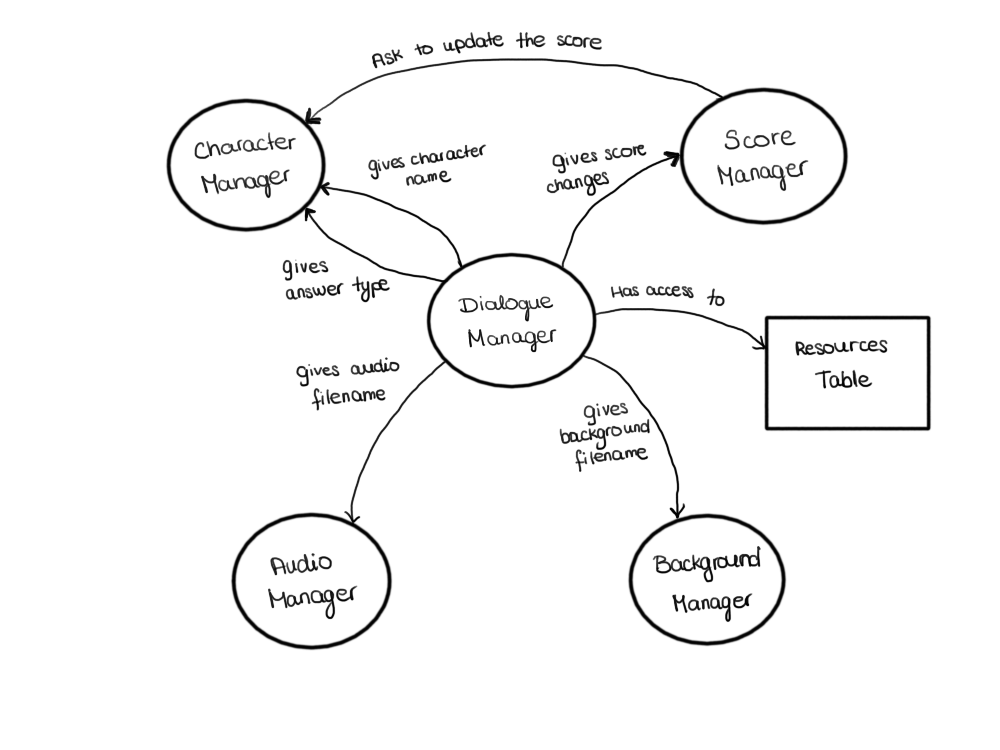 Ask to update the score
Character
Manager
gives character
name
gives score
changes
Score
Manager
gives
answer type
Dialogue
Manager
Has access to
Resources
Table
gives audio
filename
gives
background
filename
Audio
Manager
Background
Manager